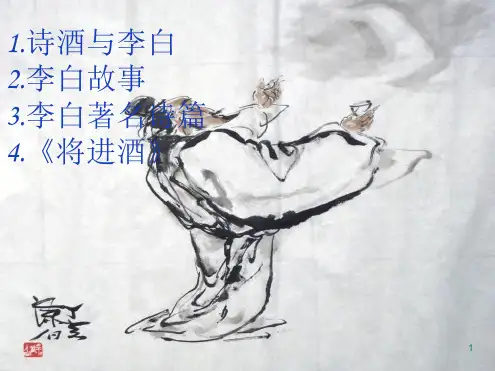 1.诗酒与李白
2.李白故事
3.李白著名诗篇
4.《将进酒》
1